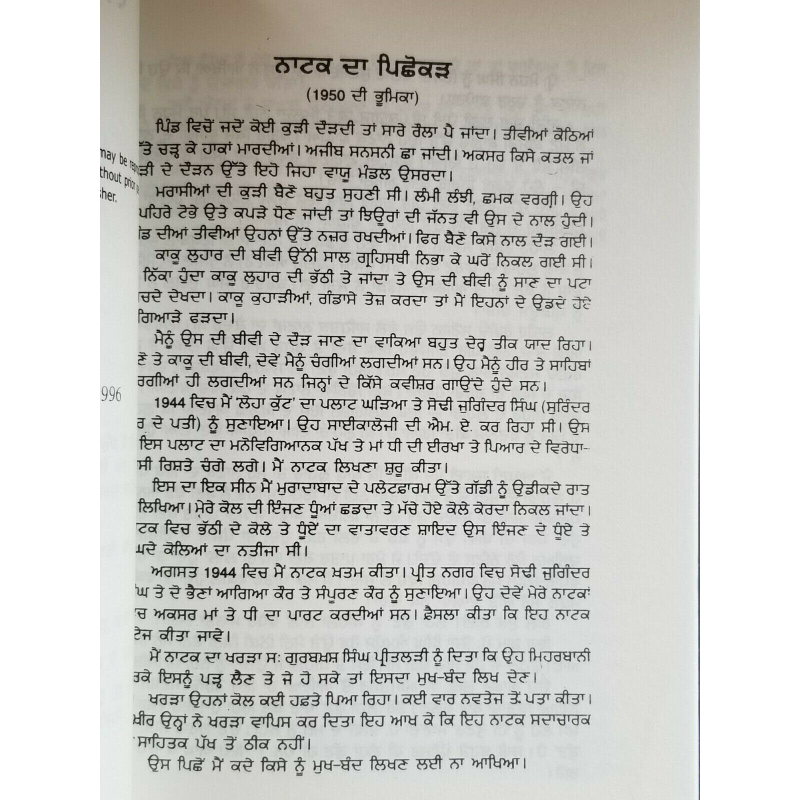 ਨਾਟਕ ਦਾ ਪਿਛੋਕੜ
(1950 ਦੀ ਭੂਮਿਕਾ)
ਪਿੰਡ ਵਿਚੋਂ ਜਦੋਂ ਕੋਈ ਕੁੜੀ ਦੌੜਦੀ ਤਾਂ ਸਾਰੇ ਰੌਲਾ ਪੈ ਜਾਂਦਾ। ਤੀਵੀਆਂ ਕੋਠਿਆਂ
ੱਤੇ ਚੜ੍ਹ ਕੇ ਹਾਕਾਂ ਮਾਰਦੀਆਂ। ਅਜੀਬ ਸਨਸਨੀ ਛਾ ਜਾਂਦੀ। ਅਕਸਰ ਕਿਸੇ ਕਤਲ ਜਾਂ
ੜੀ ਦੇ ਦੌੜਨ ਉੱਤੇ ਇਹੋ ਜਿਹਾ ਵਾਯੂ ਮੰਡਲ ਉਸਰਦਾ।
ਮਰਾਸੀਆਂ ਦੀ ਕੁੜੀ ਬੈਣੋ ਬਹੁਤ ਸੁਹਣੀ ਸੀ। ਲੰਮੀ ਲੰਝੀ, ਛਮਕ ਵਰਗੀ। ਉਹ
ਪਹਿਰੇ ਟੋਭੇ ਉਤੇ ਕਪੜੇ ਧੋਣ ਜਾਂਦੀ ਤਾਂ ਝਿਊਰਾਂ ਦੀ ਜੱਨਤ ਵੀ ਉਸ ਦੇ ਨਾਲ ਹੁੰਦੀ।
ੰਡ ਦੀਆਂ ਤੀਵੀਆਂ ਉਹਨਾਂ ਉੱਤੇ ਨਜ਼ਰ ਰਖਦੀਆਂ। ਫਿਰ ਬੈਣੋ ਕਿਸੇ ਨਾਲ ਦੌੜ ਗਈ।
ਕਾਕੂ ਲੁਹਾਰ ਦੀ ਬੀਵੀ ਉੱਨੀ ਸਾਲ ਗ੍ਰਹਿਸਥੀ ਨਿਭਾ ਕੇ ਘਰੋਂ ਨਿਕਲ ਗਈ ਸੀ।
ਨਿੱਕਾ ਹੁੰਦਾ ਕਾਕੂ ਲੁਹਾਰ ਦੀ ਭੱਠੀ ਤੇ ਜਾਂਦਾ ਤੇ ਉਸ ਦੀ ਬੀਵੀ ਨੂੰ ਸਾਣ ਦਾ ਪਟਾ
ਚਦੇ ਦੇਖਦਾ। ਕਾਕੂ ਕੁਹਾੜੀਆਂ, ਗੰਡਾਸੇ ਤੇਜ਼ ਕਰਦਾ ਤਾਂ ਮੈਂ ਇਹਨਾਂ ਦੇ ਉਡਦੇ ਹੋਏ
ਗਿਆੜੇ ਫੜਦਾ।
ਮੈਨੂੰ ਉਸ ਦੀ ਬੀਵੀ ਦੇ ਦੌੜ ਜਾਣ ਦਾ ਵਾਕਿਆ ਬਹੁਤ ਦੇਰ ਤੀਕ ਯਾਦ ਰਿਹਾ।
ਣੋ ਤੇ ਕਾਕੂ ਦੀ ਬੀਵੀ, ਦੋਵੇਂ ਮੈਨੂੰ ਚੰਗੀਆਂ ਲਗਦੀਆਂ ਸਨ। ਉਹ ਮੈਨੂੰ ਹੀਰ ਤੇ ਸਾਹਿਬਾਂ
ਰਗੀਆਂ ਹੀ ਲਗਦੀਆਂ ਸਨ ਜਿਨ੍ਹਾਂ ਦੇ ਕਿੱਸੇ ਕਵੀਸ਼ਰ ਗਾਉਂਦੇ ਹੁੰਦੇ ਸਨ।
1944 ਵਿਚ ਮੈਂ 'ਲੋਹਾ ਕੁੱਟ' ਦਾ ਪਲਾਟ ਘੜਿਆ ਤੇ ਸੋਢੀ ਜੁਗਿੰਦਰ ਸਿੰਘ (ਸੁਰਿੰਦਰ
ਰ ਦੇ ਪਤੀ) ਨੂੰ ਸੁਣਾਇਆ। ਉਹ ਸਾਈਕਾਲੋਜੀ ਦੀ ਐਮ. ਏ. ਕਰ ਰਿਹਾ ਸੀ। ਉਸ
ਇਸ ਪਲਾਟ ਦਾ ਮਨੋਵਿਗਿਆਨਕ ਪੱਖ ਤੇ ਮਾਂ ਧੀ ਦੀ ਈਰਖਾ ਤੇ ਪਿਆਰ ਦੇ ਵਿਰੋਧਾ-
ਸੀ ਰਿਸ਼ਤੇ ਚੰਗੇ ਲਗੇ। ਮੈਂ ਨਾਟਕ ਲਿਖਣਾ ਸ਼ੁਰੂ ਕੀਤਾ।
ਇਸ ਦਾ ਇਕ ਸੀਨ ਮੈਂ ਮੁਰਾਦਾਬਾਦ ਦੇ ਪਲੇਟਫ਼ਾਰਮ ਉੱਤੇ ਗੱਡੀ ਨੂੰ ਉਡੀਕਦੇ ਰਾਤ
ਲਿਖਿਆ। ਮੇਰੇ ਕੋਲ ਦੀ ਇੰਜਣ ਧੂੰਆਂ ਛਡਦਾ ਤੇ ਮੱਚੇ ਹੋਏ ਕੋਲੇ ਕੇਰਦਾ ਨਿਕਲ ਜਾਂਦਾ।
ਟਕ ਵਿਚ ਭੱਠੀ ਦੇ ਕੋਲੇ ਤੇ ਧੂੰਏਂ ਦਾ ਵਾਤਾਵਰਣ ਸ਼ਾਇਦ ਉਸ ਇੰਜਣ ਦੇ ਧੂੰਏ ਤੇ
ਘਦੇ ਕੋਲਿਆਂ ਦਾ ਨਤੀਜਾ ਸੀ।
ਅਗਸਤ 1944 ਵਿਚ ਮੈਂ ਨਾਟਕ ਖ਼ਤਮ ਕੀਤਾ। ਪ੍ਰੀਤ ਨਗਰ ਵਿਚ ਸੋਢੀ ਜੁਗਿੰਦਰ
ੰਘ ਤੇ ਦੋ ਭੈਣਾਂ ਆਗਿਆ ਕੌਰ ਤੇ ਸੰਪੂਰਣ ਕੌਰ ਨੂੰ ਸੁਣਾਇਆ। ਉਹ ਦੋਵੇਂ ਮੇਰੇ ਨਾਟਕਾਂ
ਚ ਅਕਸਰ ਮਾਂ ਤੇ ਧੀ ਦਾ ਪਾਰਟ ਕਰਦੀਆਂ ਸਨ। ਫ਼ੈਸਲਾ ਕੀਤਾ ਕਿ ਇਹ ਨਾਟਕ
ਟੇਜ ਕੀਤਾ ਜਾਵੇ।
ਮੈਂ ਨਾਟਕ ਦਾ ਖਰੜਾ ਸ: ਗੁਰਬਖ਼ਸ਼ ਸਿੰਘ ਪ੍ਰੀਤਲੜੀ ਨੂੰ ਦਿਤਾ ਕਿ ਉਹ ਮਿਹਰਬਾਨੀ
ਰਕੇ ਇਸਨੂੰ ਪੜ੍ਹ ਲੈਣ ਤੇ ਜੇ ਹੋ ਸਕੇ ਤਾਂ ਇਸਦਾ ਮੁਖ-ਬੰਦ ਲਿਖ ਦੇਣ।
ਖਰੜਾ ਉਹਨਾਂ ਕੋਲ ਕਈ ਹਫ਼ਤੇ ਪਿਆ ਰਿਹਾ। ਕਈ ਵਾਰ ਨਵਤੇਜ ਤੋਂ ਪਤਾ ਕੀਤਾ।
ਖ਼ੀਰ ਉਨ੍ਹਾਂ ਨੇ ਖਰੜਾ ਵਾਪਿਸ ਕਰ ਦਿਤਾ ਇਹ ਆਖ ਕੇ ਕਿ ਇਹ ਨਾਟਕ ਸਦਾਚਾਰਕ
ਸਾਹਿਤਕ ਪੱਖ ਤੋਂ ਠੀਕ ਨਹੀਂ।
ਉਸ ਪਿਛੋਂ ਮੈਂ ਕਦੇ ਕਿਸੇ ਨੂੰ ਮੁਖ-ਬੰਦ ਲਿਖਣ ਲਈ ਨਾ ਆਖਿਆ।
may be rep
thout prior
her.
996